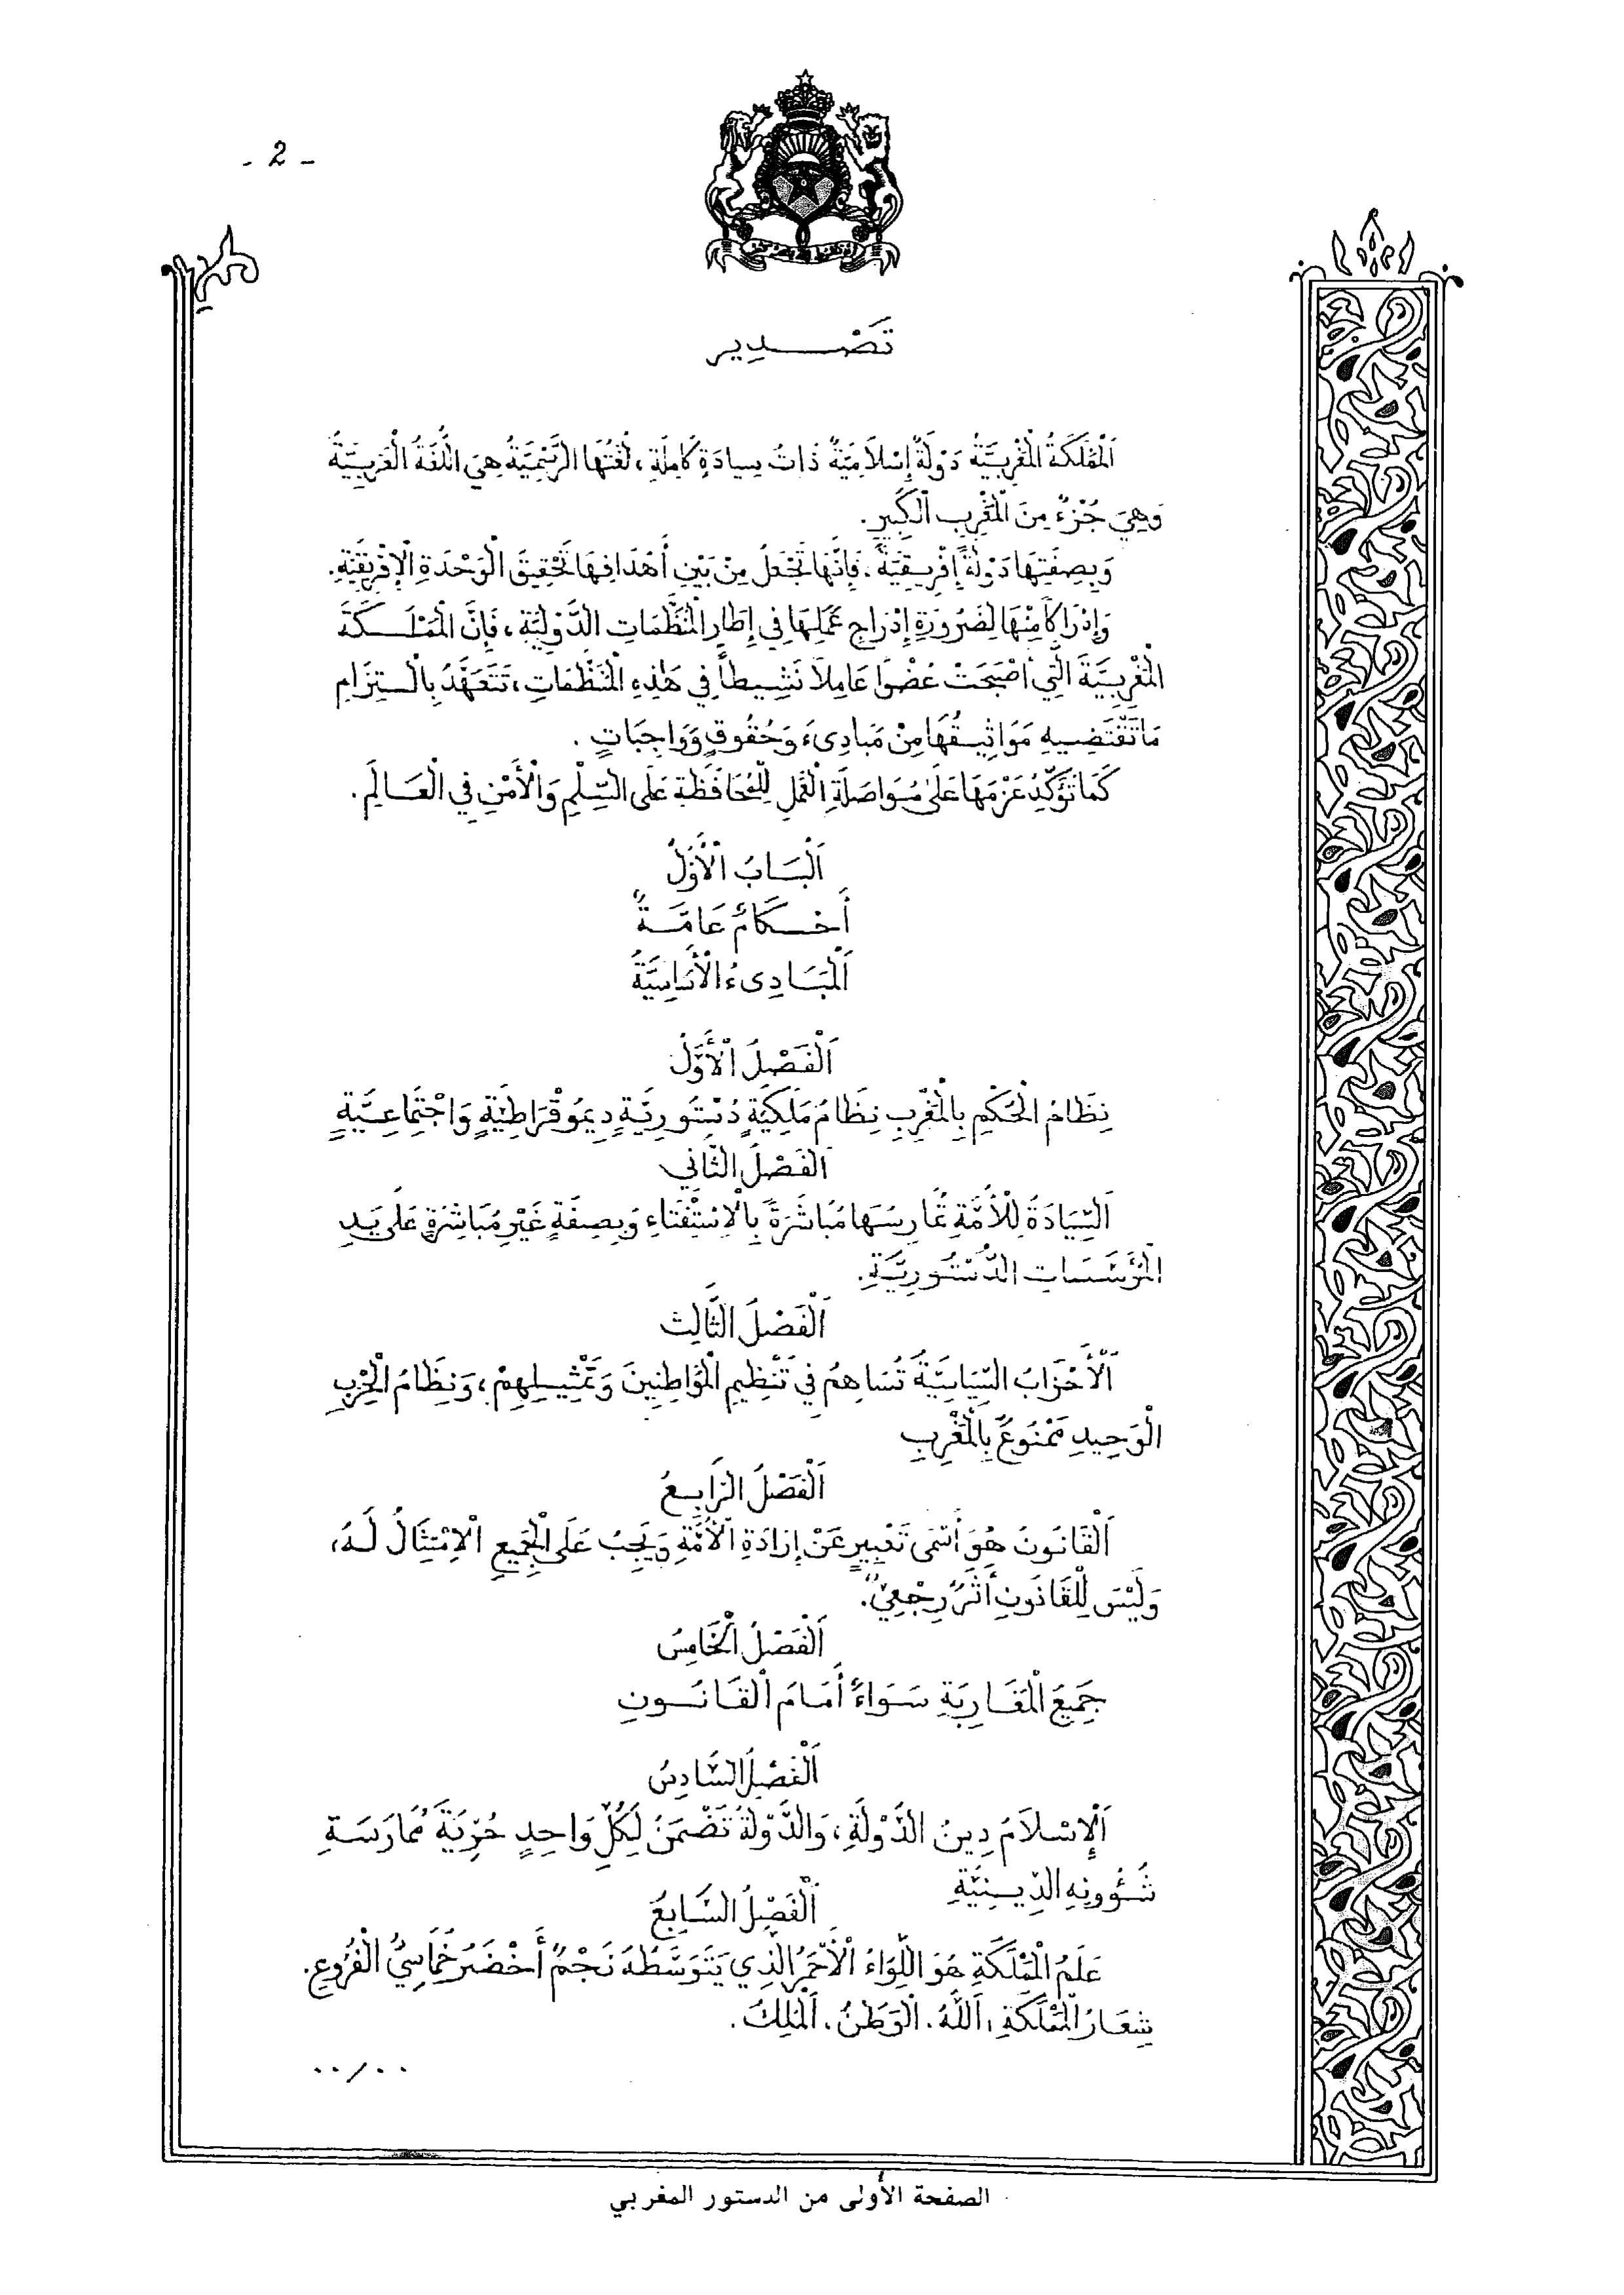 - 2 -
تَصْدِير
اَلْمَمْلَكَةُ الْمَغْرِبِيَّةُ دَوْلَةٌ إِسْلاَمِيَّةٌ ذَاتُ سِيادَةٍ كَامِلَةٍ، لُغَتُهَا الرَّسْمِيَّةُ هِيَ اللُّغَةُ الْعَرَبِيَّةُ
وَهِيَ جُزْءٌ مِنَ الْمَغْرِبِ الْكَبِيرِ.
وَبِصِفَتِهَا دَوْلَةً إِفْرِيقِيَّةً، فَإِنَّهَا تَجْعَلُ مِنْ بَيْنِ أَهْدَافِهَا تَحْقِيقَ الْوَحْدَةِ الْإِفْرِيقِيَّةِ.
وَإِدْرَاكًا مِنْهَا لِضَرُورَةِ إِدْرَاجِ عَمَلِهَا فِي إِطَارِ الْمُنَظَّمَاتِ الدَّوْلِيَّةِ، فَإِنَّ الْمَمْلَكَةَ
الْمَغْرِبِيَّةَ الَّتِي أَصْبَحَتْ عُضْوًا عَامِلاً نَشِيطاً فِي هَذِهِ الْمُنَظَّمَاتِ، تَتَعَهَّدُ بِالْتِزَامِ
مَا تَقْتَضِيهِ مَوَاثِيقُهَا مِنْ مَبَادِىءَ وَحُقُوقٍ وَوَاجِبَاتٍ.
كَمَا تُؤَكِّدُ عَزْمَهَا عَلَى مُوَاصَلَةِ الْعَمَلِ لِلْمُحَافَظَةِ عَلَى السِّلْمِ وَالْأَمْنِ فِي الْعَالَمِ.
اَلْبَابُ الْأَوَّلُ
أَحْكَامٌ عَامَّةٌ
اَلْمَبَادِىءُ الْأَسَاسِيَّةُ
اَلْفَصْلُ الْأَوَّلُ
نِظَامُ الْحُكْمِ بِالْمَغْرِبِ نِظَامُ مَلَكِيَّةٍ دُسْتُورِيَّةٍ دِيمُوقْرَاطِيَّةٍ وَاجْتِمَاعِيَّةٍ
اَلْفَصْلُ الثَّانِي
اَلسِّيَادَةُ لِلْأُمَّةِ تُمَارِسُهَا مُبَاشَرَةً بِالْاِسْتِفْتَاءِ وَبِصِفَةٍ غَيْرِ مُبَاشِرَةٍ عَلَى يَدِ
الْمُؤَسَّسَاتِ الدُّسْتُورِيَّةِ.
اَلْفَصْلُ الثَّالِث
اَلْأَحْزَابُ السِّيَاسِيَّةُ تُسَاهِمُ فِي تَنْظِيمِ الْمُوَاطِنِينَ وَتَمْثِيلِهِمْ، وَنِظَامُ الْحِزْبِ
الْوَحِيدِ مَمْنُوعٌ بِالْمَغْرِبِ
اَلْفَصْلُ الرَّابِعُ
اَلْقَانُونُ هُوَ أَسْمَى تَعْبِيرٍ عَنْ إِرَادَةِ الْأُمَّةِ وَيَجِبُ عَلَى الْجَمِيعِ الْاِمْتِثَالُ لَهُ،
وَلَيْسَ لِلْقَانُونِ أَثَرٌ رَجْعِيٌّ.
اَلْفَصْلُ الْخَامِسُ
جَمِيعُ الْمَغَارِبَةِ سَوَاءٌ أَمَامَ الْقَانُونِ
اَلْفَصْلُ السَّادِسُ
اَلْإِسْلاَمُ دِينُ الدَّوْلَةِ، وَالدَّوْلَةُ تَضْمَنُ لِكُلِّ وَاحِدٍ حُرِّيَّةَ مُمَارَسَةِ
شُؤُونِهِ الدِّينِيَّةِ
اَلْفَصْلُ السَّابِعُ
عَلَمُ الْمَمْلَكَةِ هُوَ اللِّوَاءُ الْأَحْمَرُ الَّذِي يَتَوَسَّطُهُ نَجْمٌ أَخْضَرُ خُمَاسِيُّ الْفُرُوعِ.
شِعَارُ الْمَمْلَكَةِ: اَللَّهُ. الْوَطَنُ. اَلْمَلِكُ.
../..
الصفحة الأولى من الدستور المغربي